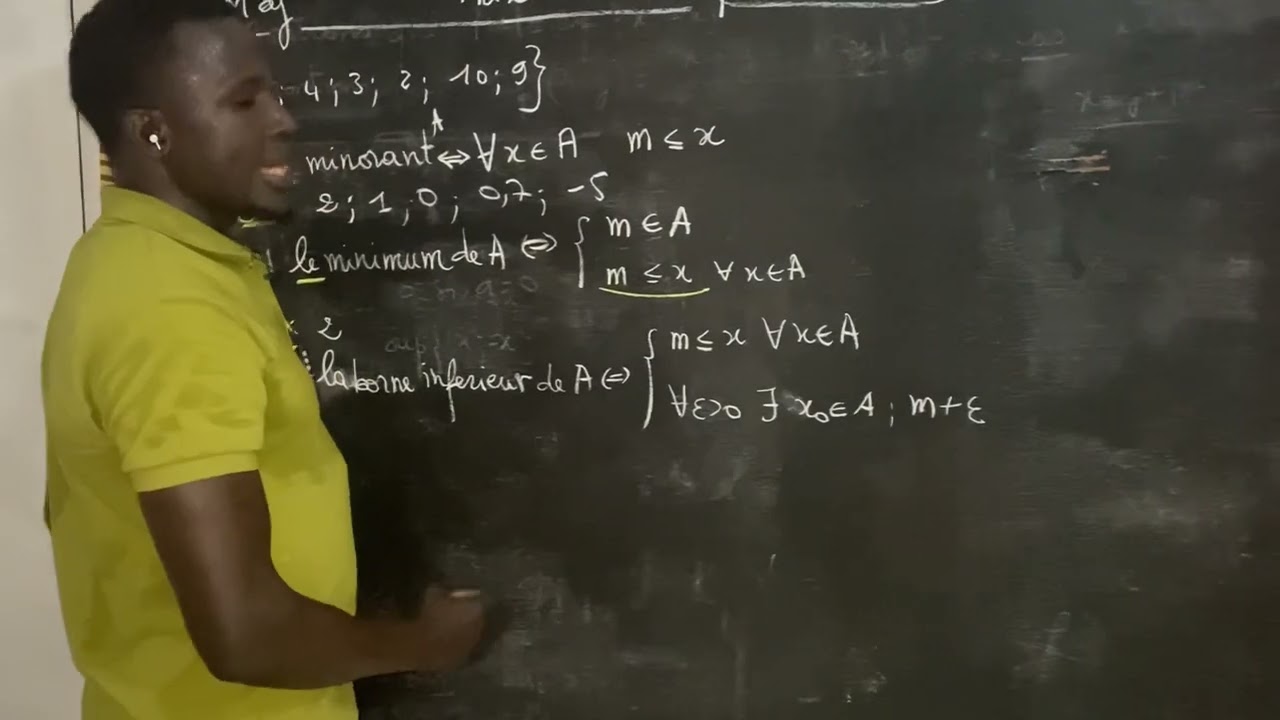 ; 4 ; 3 ; 2 ; 10 ; 9}
minorant A ⇔ ∀ x ∈ A m ≤ x
2 ; 1 ; 0 ; 0,7 ; -5
le minimum de A ⇔ { m ∈ A
m ≤ x ∀ x ∈ A
2
la borne inferieur de A ⇔ { m ≤ x ∀ x ∈ A
∀ε>0 ∃ x₀ ∈ A ; m+ε